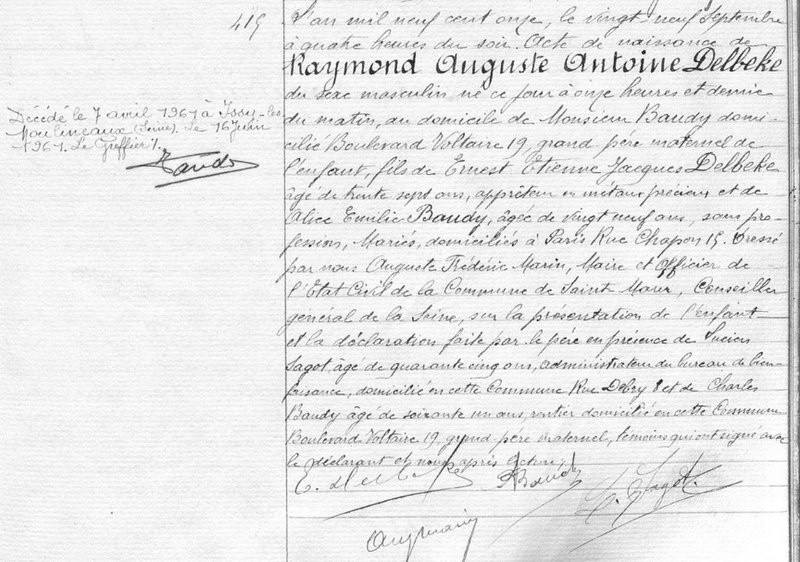 419
L'an mil neuf cent onze, le vingt neuf Septembre
à quatre heures du soir. Acte de naissance de
Raymond Auguste Antoine Delbeke
du sexe masculin né ce jour à onze heures et demie
du matin, au domicile de Monsieur Baudy domi-
cilié Boulevard Voltaire 19, grand père maternel de
l'enfant, fils de Ernest Etienne Jacques Delbeke
âgé de trente sept ans, apprêteur en métaux précieux et de
Alice Emilie Baudy, âgée de vingt neuf ans, sans pro-
fession, Mariés, domiciliés à Paris Rue Chapon 15. Dressé
par nous Auguste Frédéric Marin, Maire et Officier de
l'Etat Civil de la Commune de Saint Maur, Conseiller
général de la Seine, sur la présentation de l'enfant
et la déclaration faite par le père en présence de Lucien
Sagot, âgé de quarante cinq ans, administrateur du bureau de bien-
faisance, domicilié en cette Commune Rue Delry 8 et de Charles
Baudy âgé de soixante un ans, rentier domicilié en cette Commune
Boulevard Voltaire 19, grand père maternel, témoins qui ont signé avec
le déclarant et nous après lecture.
Décédé le 7 avril 1961 à Issy-les
Moulineaux (Seine). Le 16 Juin
1961. Le Greffier.
E. Delbeke
Baudy
L. Sagot
Aug Marin